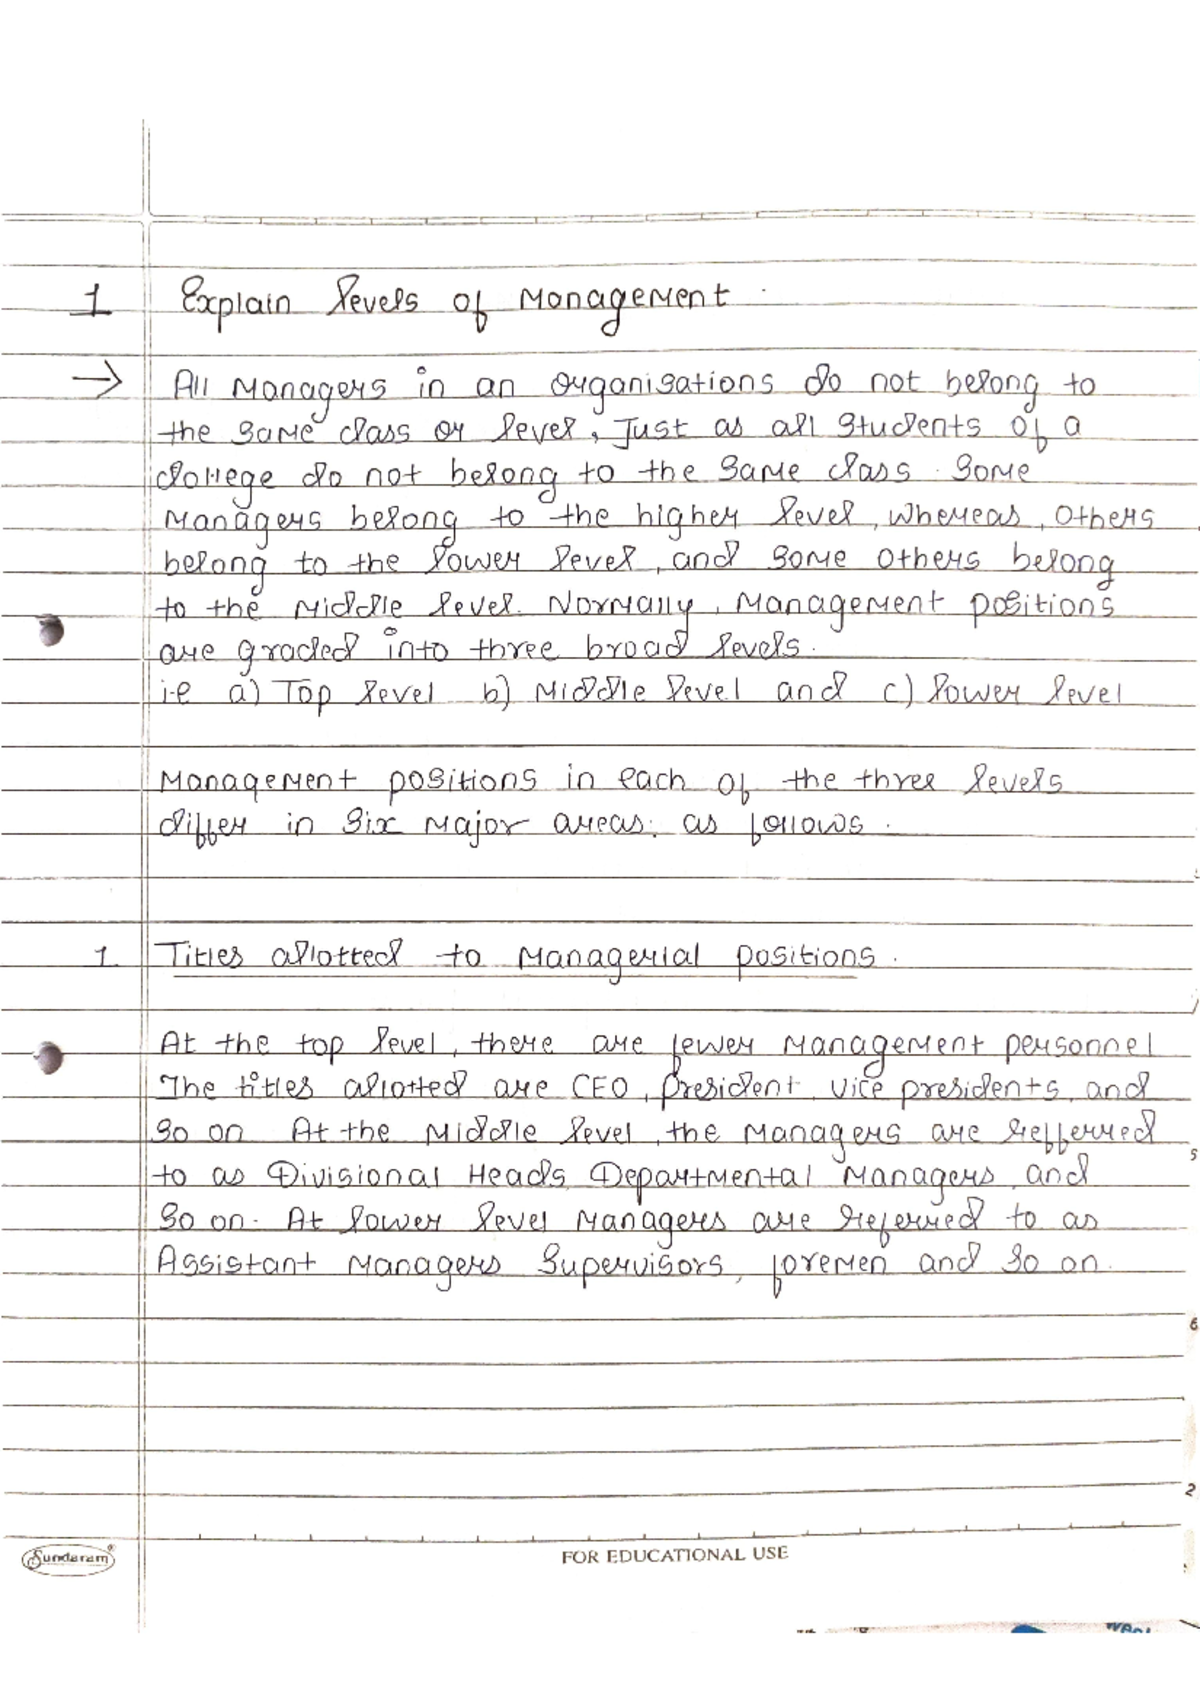 1 Explain levels of Management.
→ All Managers in an organisations do not belong to
the same class or level, Just as all students of a
college do not belong to the same class. Some
Managers belong to the higher level, whereas, others
belong to the lower level, and some others belong
to the Middle level. Normally, Management positions
are graded into three broad levels.
i.e a) Top level b) Middle level and c) lower level
Management positions in each of the three levels
differ in six Major areas. as follows.
1. Titles allotted to Managerial positions.
At the top level, there are fewer Management personnel
The titles allotted are CEO, president, vice presidents, and
so on. At the Middle level, the Managers are refferred
to as Divisional Heads, Departmental Managers, and
so on. At lower level Managers are referred to as
Assistant Managers Supervisors, foremen and so on.
Sundaram
FOR EDUCATIONAL USE